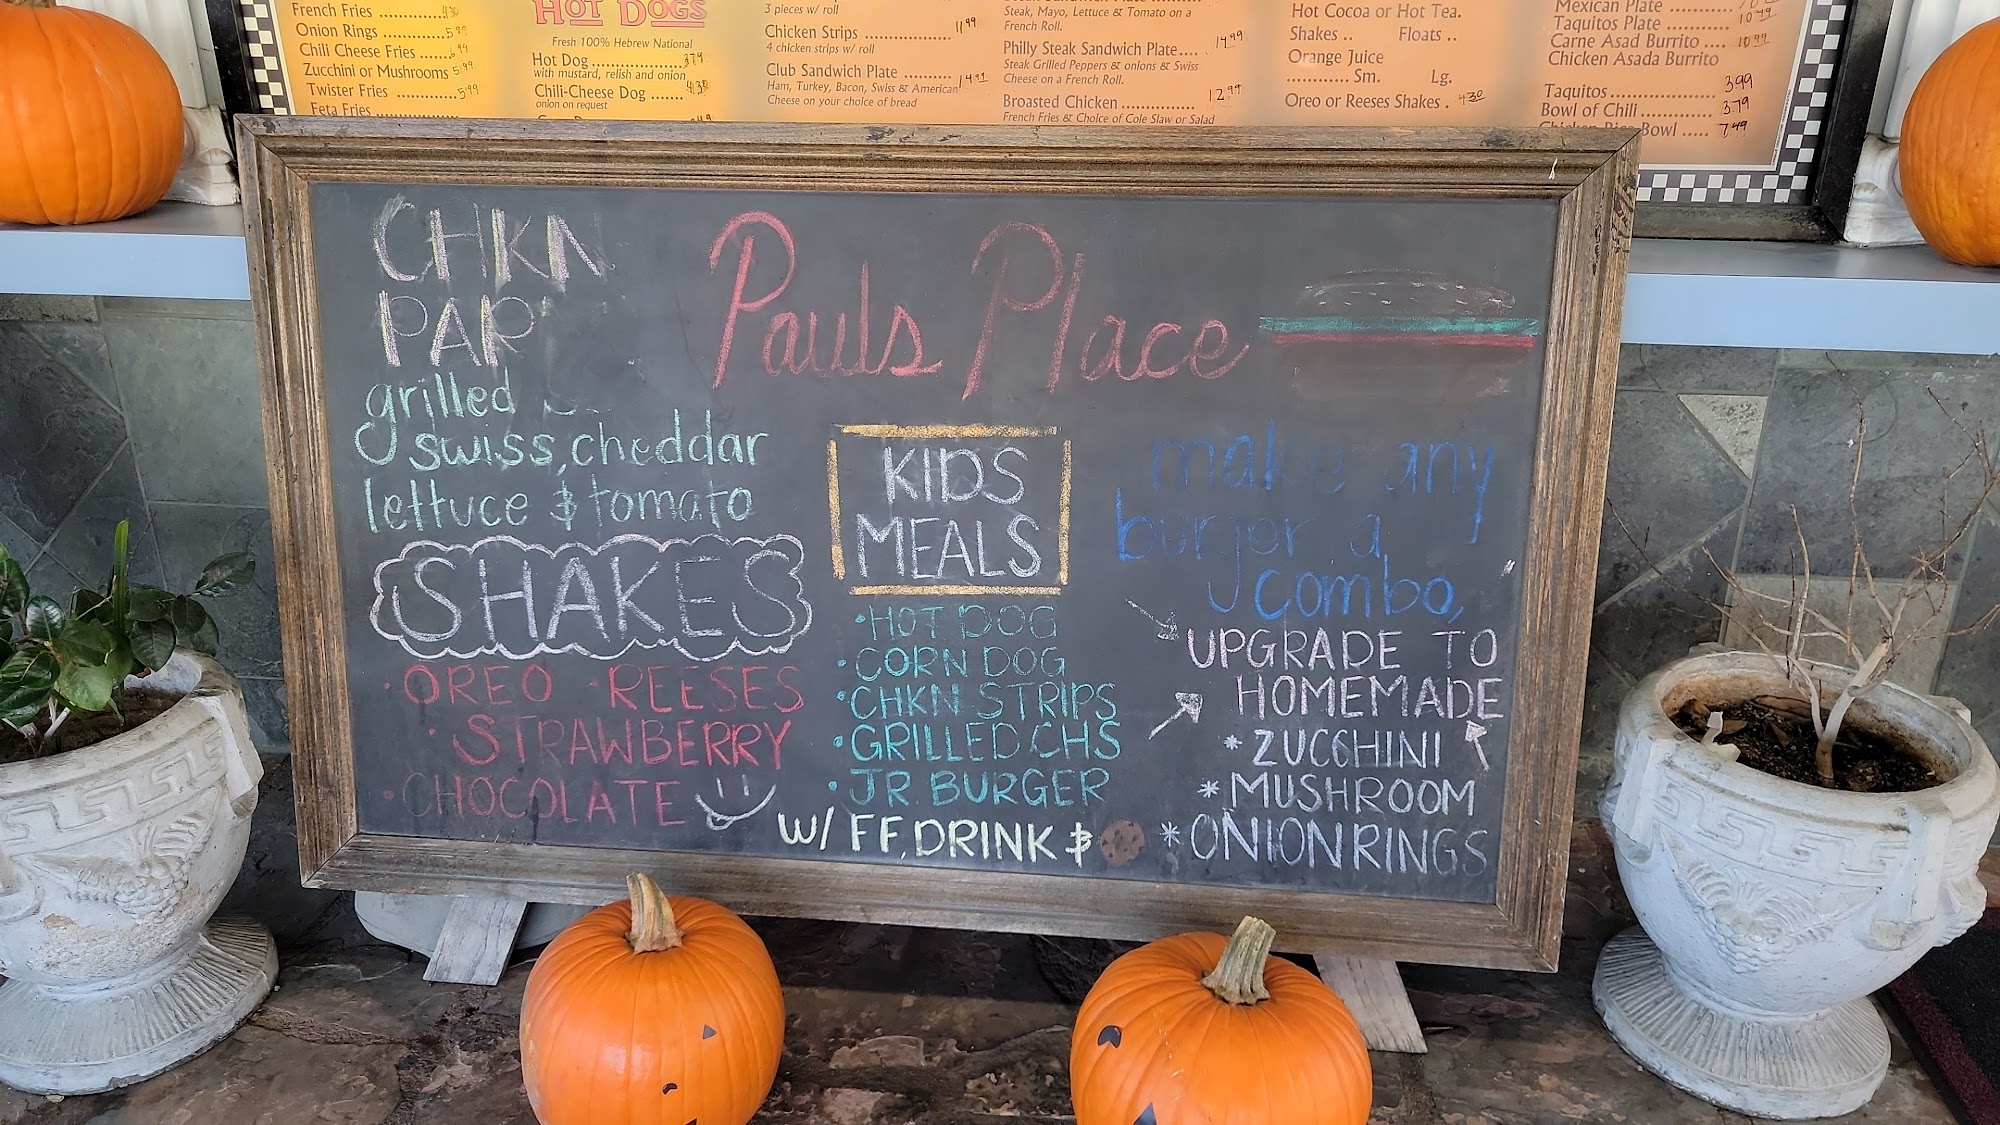 French Fries
Onion Rings 5.99
Chili Cheese Fries 6.99
Zucchini or Mushrooms 5.99
Twister Fries 5.99
Feta Fries
HOT DOGS
Fresh 100% Hebrew National
Hot Dog 3.79
with mustard, relish and onion
Chili-Cheese Dog
onion on request
3 pieces w/ roll
Chicken Strips 11.99
4 chicken strips w/ roll
Club Sandwich Plate
Ham, Turkey, Bacon, Swiss & American
Cheese on your choice of bread
Steak, Mayo, Lettuce & Tomato on a
French Roll.
Philly Steak Sandwich Plate 14.99
Steak Grilled Peppers & onions & Swiss
Cheese on a French Roll.
Broasted Chicken 12.99
French Fries & Choice of Cole Slaw or Salad
Hot Cocoa or Hot Tea.
Shakes .. Floats ..
Orange Juice
Sm. Lg.
Oreo or Reeses Shakes . 4.30
Mexican Plate
Taquitos Plate 10.49
Carne Asad Burrito 10.99
Chicken Asada Burrito
Taquitos 3.99
Bowl of Chili 3.79
Chicken Rice Bowl 7.49
CHKN
PAR
grilled
swiss, cheddar
lettuce & tomato
SHAKES
• OREO • REESES
• STRAWBERRY
• CHOCOLATE
Pauls Place
KIDS
MEALS
• HOT DOG
• CORN DOG
• CHKN STRIPS
• GRILLED CHS
• JR. BURGER
W/ FF, DRINK &
make any
burger a
combo,
UPGRADE TO
HOMEMADE
* ZUCCHINI
* MUSHROOM
* ONION RINGS